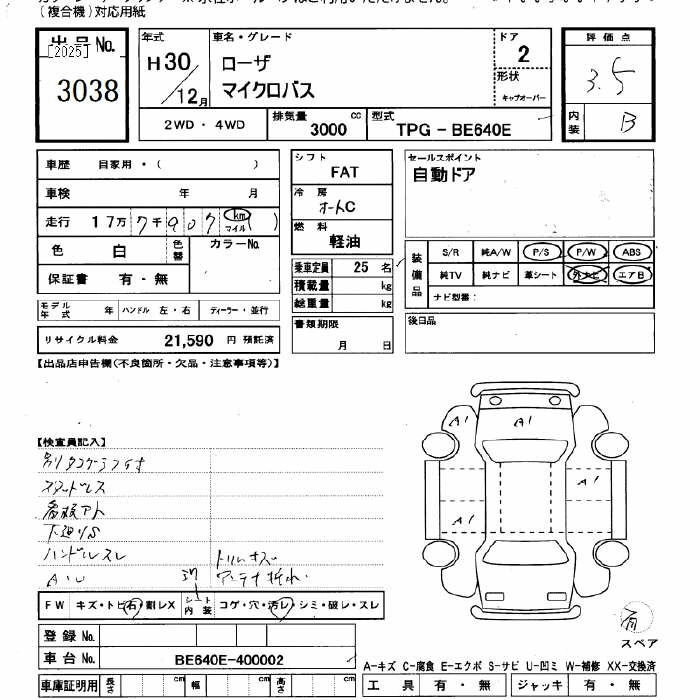 (複合機)対応用紙
出品No.
[2025]
3038
年式
H30/12月
車名・グレード
ローザ
マイクロバス
ドア
2
形状
キャブオーバー
評価点
3.5
内装
B
2WD・4WD
排気量
3000
cc
型式
TPG-BE640E
車歴 自家用・( )
車検 年 月
走行 17万 7千 907 (km マイル)
色 白 色替 カラーNo.
保証書 有・無
モデル年式 年 ハンドル 左・右 ディーラー・並行
リサイクル料金 21,590 円 預託済
シフト
FAT
冷房
オートC
燃料
軽油
乗車定員 25 名
積載量 kg
総重量 kg
書類期限
月 日
セールスポイント
自動ドア
装備品
S/R 純A/W P/S P/W ABS
純TV 純ナビ 革シート 外ナビ エアB
ナビ型番:
後日品
【出品店申告欄(不良箇所・欠品・注意事項等)】
【検査員記入】
スタッドレス
看板アト
下廻りS
ハンドルスレ
トリムキズ
AU
アンテナ折れ
FW キズ・トビ石・割レX シート内装 コゲ・穴・汚レ・シミ・破レ・スレ
登録No.
車台No. BE640E-400002
車庫証明用 長さ cm 幅 cm 高さ cm
A1
A1
A1
A1
有
スペア
A-キズ C-腐食 E-エクボ S-サビ U-凹ミ W-補修 XX-交換済
工具 有・無 ジャッキ 有・無